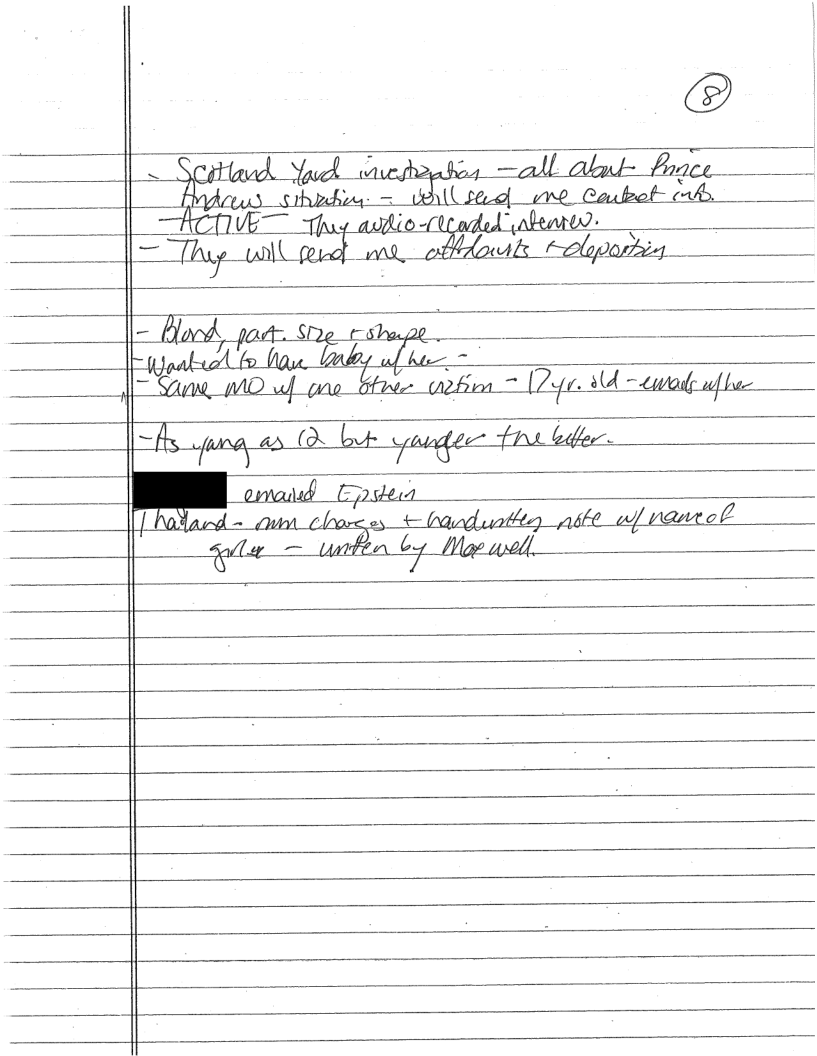 8
- Scotland Yard investigation - all about Prince
Andrew situation - will send me contact info.
- ACTIVE - They audio-recorded interview.
- They will send me affidavits + deposition
- Blond, part. size + shape.
- Wanted to have baby w/ her -
- Same MO w/ one other victim - 17 yr. old - emails w/ her
- As young as 12 but younger the better.
emailed Epstein
Thailand - charges + handwritten note w/ name of
- written by Maxwell.